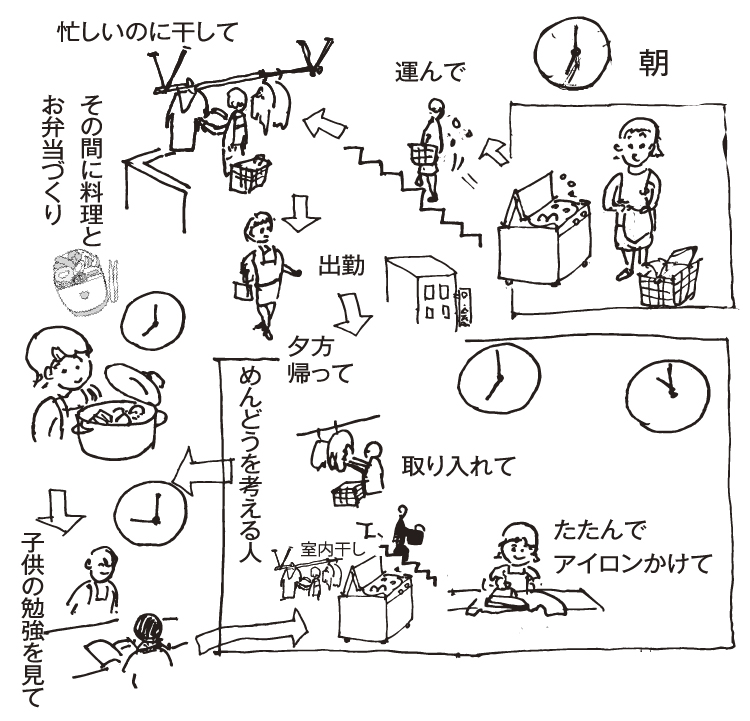 朝
運んで
忙しいのに干して
その間に料理と
お弁当づくり
出勤
夕方
帰って
めんどうを考える人
取り入れて
たたんで
アイロンかけて
室内干し
子供の勉強を見て